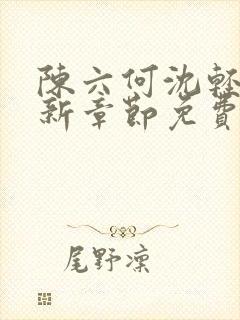 陳六何沈輕
新章節免費
尾野凜